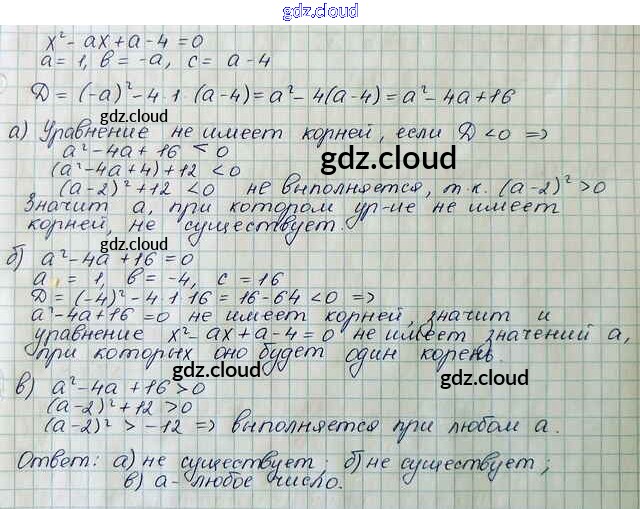 gdz.cloud
x² - ax + a - 4 = 0
a = 1, в = -a, c = a - 4
gdz.cloud
Д = (-a)² - 4·1·(a-4) = a² - 4(a-4) = a² - 4a + 16
а) Уравнение не имеет корней, если Д < 0 =>
gdz.cloud
a² - 4a + 16 < 0
(a² - 4a + 4) + 12 < 0
gdz.cloud
(a-2)² + 12 < 0 не выполняется, т.к. (a-2)² > 0
Значит а, при котором ур-ие не имеет
корней, не существует.
gdz.cloud
б) a² - 4a + 16 = 0
a = 1, в = -4, c = 16
Д = (-4)² - 4·1·16 = 16 - 64 < 0 =>
gdz.cloud
a² - 4a + 16 = 0 не имеет корней, значит и
уравнение x² - ax + a - 4 = 0 не имеет значений а,
при которых оно будет один корень.
gdz.cloud
gdz.cloud
в) a² - 4a + 16 > 0
(a-2)² + 12 > 0
(a-2)² > -12 => выполняется при любом а.
gdz.cloud
Ответ: а) не существует; б) не существует;
в) а - любое число.
gdz.cloud